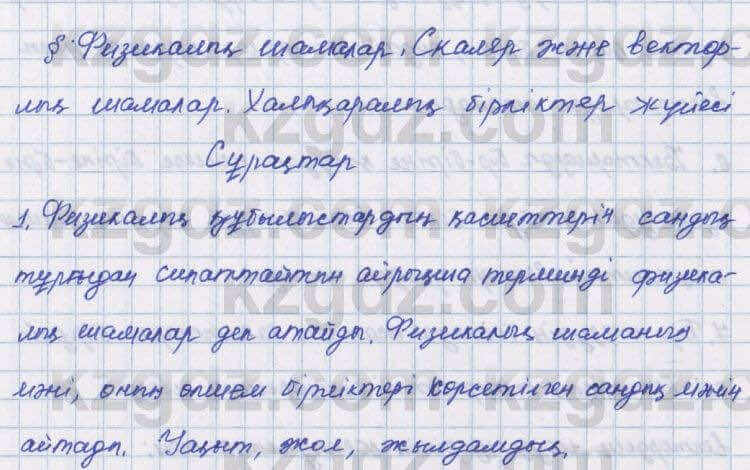 §. Физикалық шамалар. Скаляр және вектор-
лық шамалар. Халықаралық бірліктер жүйесі
Сұрақтар
1. Физикалық құбылыстардың қасиеттерін сандық
тұрғыдан сипаттайтын айрықша терминді физика-
лық шамалар деп атайды. Физикалық шаманың
мәні, оның өлшем бірліктері көрсетілген сандық мәнін
айтады. Уақыт, жол, жылдамдық.